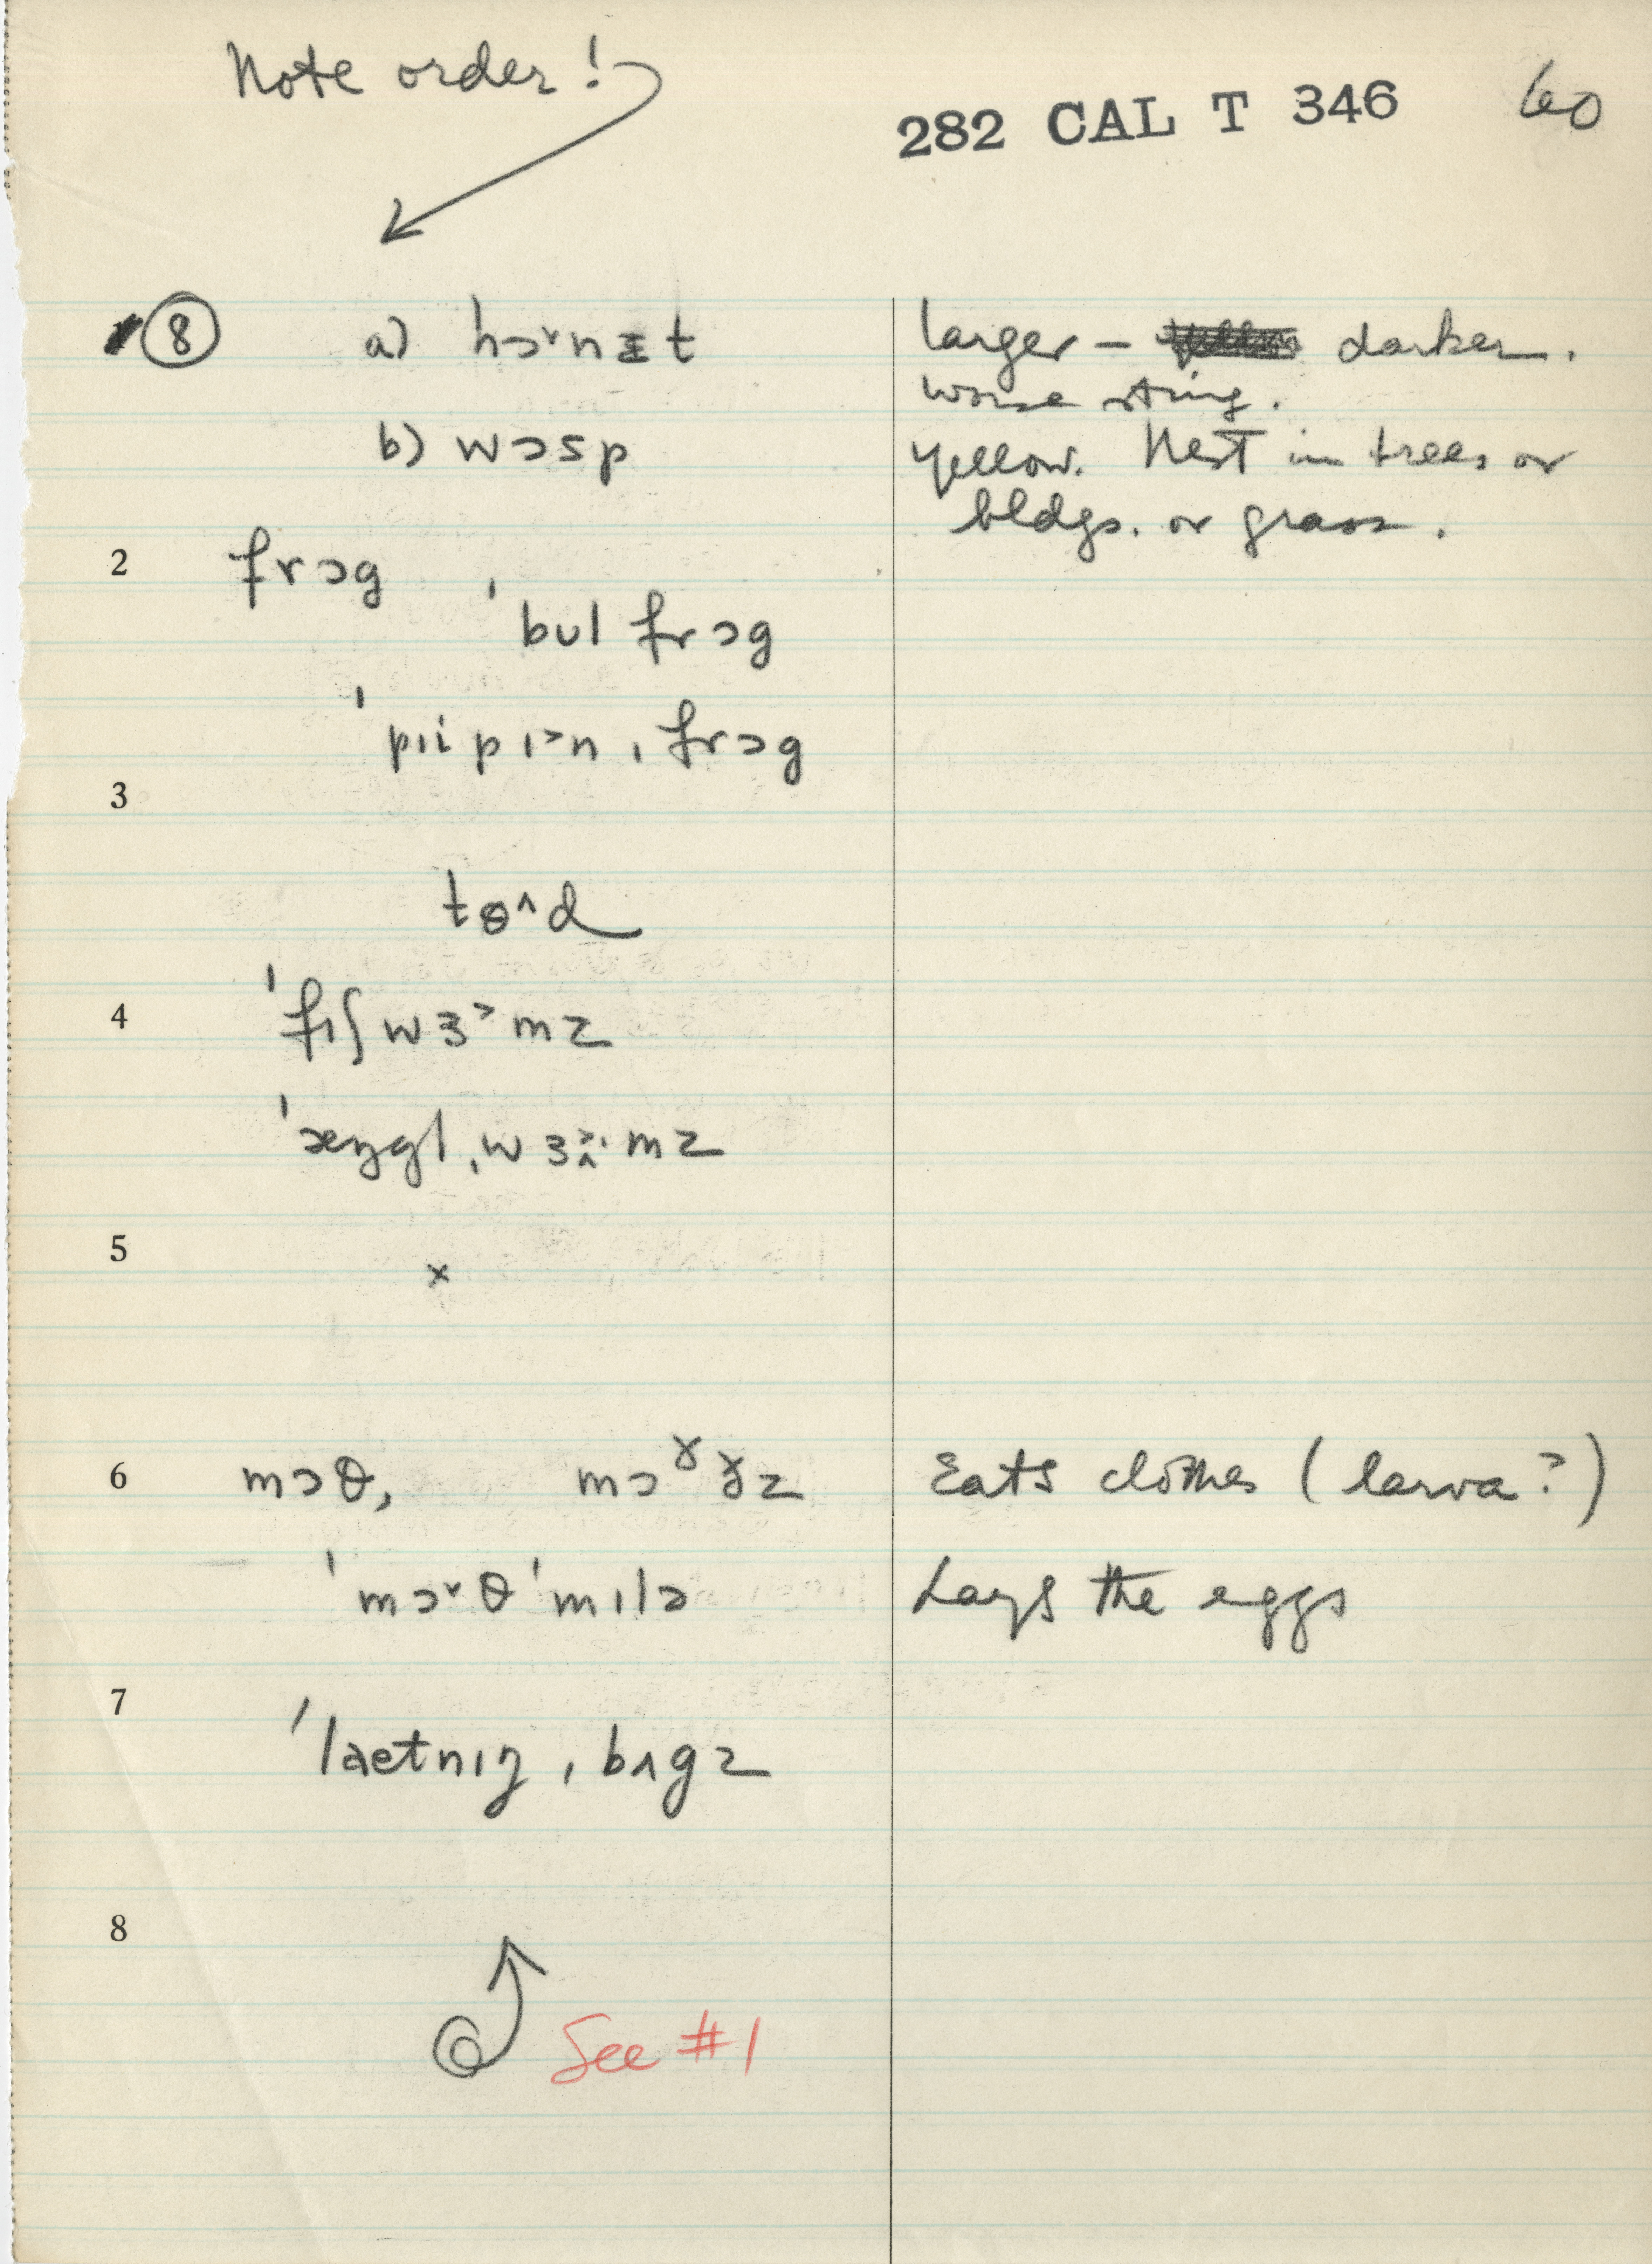 Note order!
282 CAL T 346 60
8 a) hɔ˅nɪt larger – darker.
worse sting.
b) wɔsp yellow. Nest in trees or
bldgs. or grass.
2 frɔg
ˈbʊl frɔg
ˈpɪi pɪ˃n ˌfrɔg
3
tɵ^d
4 ˈfɪʃwɜ˃mz
ˈæŋgl ˌwɜmz
5 x
6 mɔθ, mɔˠɣz Eats clothes (larva?)
ˈmɔ˅θ ˈmɪlə Lays the eggs
7
ˈlaetnɪŋ ˌbʌgz
8
See #1